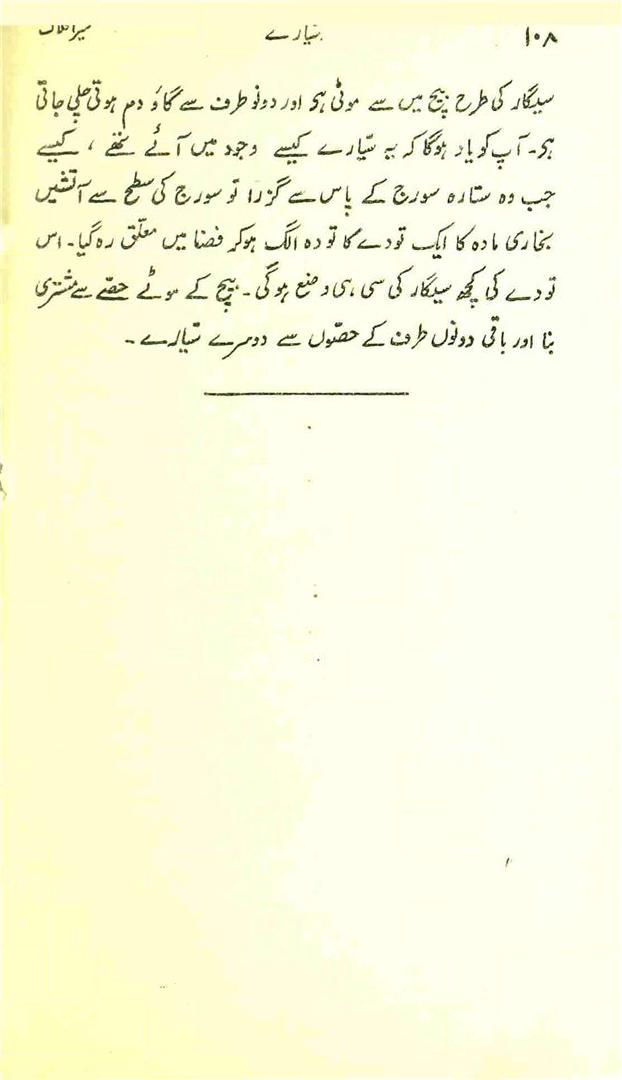 ۱۰۸ سیارے سیر افلاک
سیگار کی طرح بیچ میں سے موٹی ہو اور دونو طرف سے گاؤ دم ہوتی چلی جاتی
ہو۔ آپ کو یاد ہوگا کہ یہ سیّارے کیسے وجود میں آئے تھے ، کیسے
جب وہ ستارہ سورج کے پاس سے گزرا تو سورج کی سطح سے آتشیں
بخاری مادہ کا ایک تودے کا تودہ الگ ہوکر فضا میں معلّق رہ گیا۔ اس
تودے کی کچھ سیگار کی سی ہی وضع ہوگی۔ بیچ کے موٹے حصّے سے مشتری
بنا اور باقی دونوں طرف کے حصّوں سے دوسرے سیّارے۔